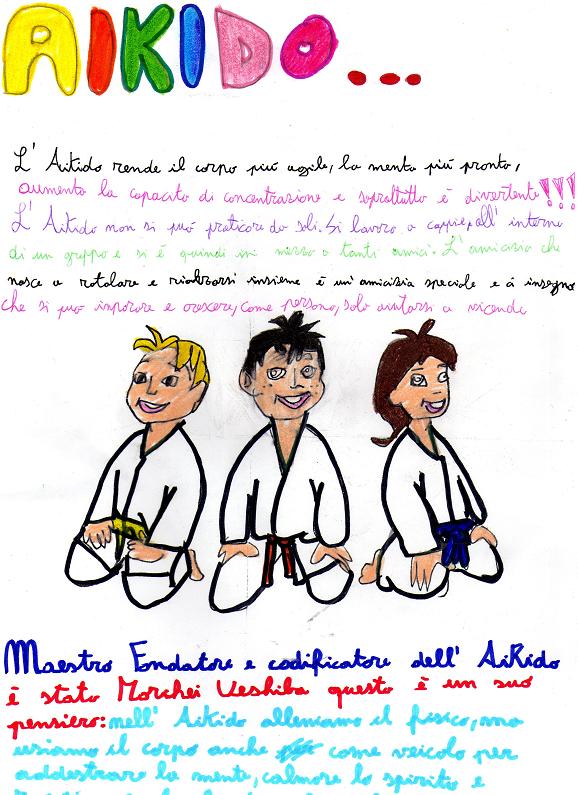 AIKIDO...
L'Aikido rende il corpo più agile, la mente più pronta,
aumenta la capacità di concentrazione e soprattutto è divertente!!!
L'Aikido non si può praticare da soli. Si lavora a coppie, all'interno
di un gruppo e si è quindi in mezzo a tanti amici. L'amicizia che
nasce a rotolare e rialzarsi insieme è un'amicizia speciale e ci insegna
che si può imparare e crescere, come persone, solo aiutarsi a vicenda
Maestro Fondatore e codificatore dell'AiKido
è stato Morehei Ueshiba questo è un suo
pensiero: nell'Aikido alleniamo il fisico, ma
usiamo il corpo anche come veicolo per
addestrare la mente, calmare lo spirito e